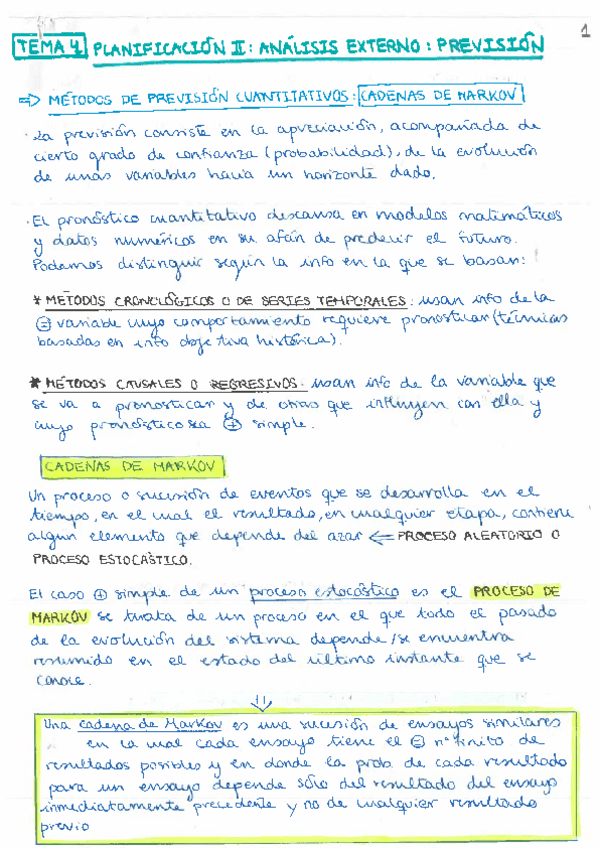 1
TEMA 4 PLANIFICACIÓN II: ANÁLISIS EXTERNO: PREVISIÓN
⇨ MÉTODOS DE PREVISIÓN CUANTITATIVOS: CADENAS DE MARKOV
· La previsión consiste en la apreciación, acompañada de
cierto grado de confianza (probabilidad), de la evolución
de unas variables hacia un horizonte dado.
· El pronóstico cuantitativo descansa en modelos matemáticos
y datos numéricos en su afán de predecir el futuro.
Podemos distinguir según la info en la que se basan:
* MÉTODOS CRONOLÓGICOS O DE SERIES TEMPORALES: usan info de la
⊜ variable cuyo comportamiento requiere pronosticar (técnicas
basadas en info objetiva histórica).
* MÉTODOS CAUSALES O REGRESIVOS: usan info de la variable que
se va a pronosticar y de otras que influyen con ella y
cuyo pronóstico sea ⊕ simple.
CADENAS DE MARKOV
Un proceso o sucesión de eventos que se desarrolla en el
tiempo, en el cual el resultado, en cualquier etapa, contiene
algún elemento que depende del azar ⇐ PROCESO ALEATORIO O
PROCESO ESTOCÁSTICO.
El caso ⊕ simple de un proceso estocástico es el PROCESO DE
MARKOV se trata de un proceso en el que todo el pasado
de la evolución del sistema depende/se encuentra
resumido en el estado del último instante que se
conoce.
⇓
Una cadena de Markov es una sucesión de ensayos similares
en la cual cada ensayo tiene el ⊜ nº finito de
resultados posibles y en donde la prob. de cada resultado
para un ensayo depende sólo del resultado del ensayo
inmediatamente precedente y no de cualquier resultado
previo